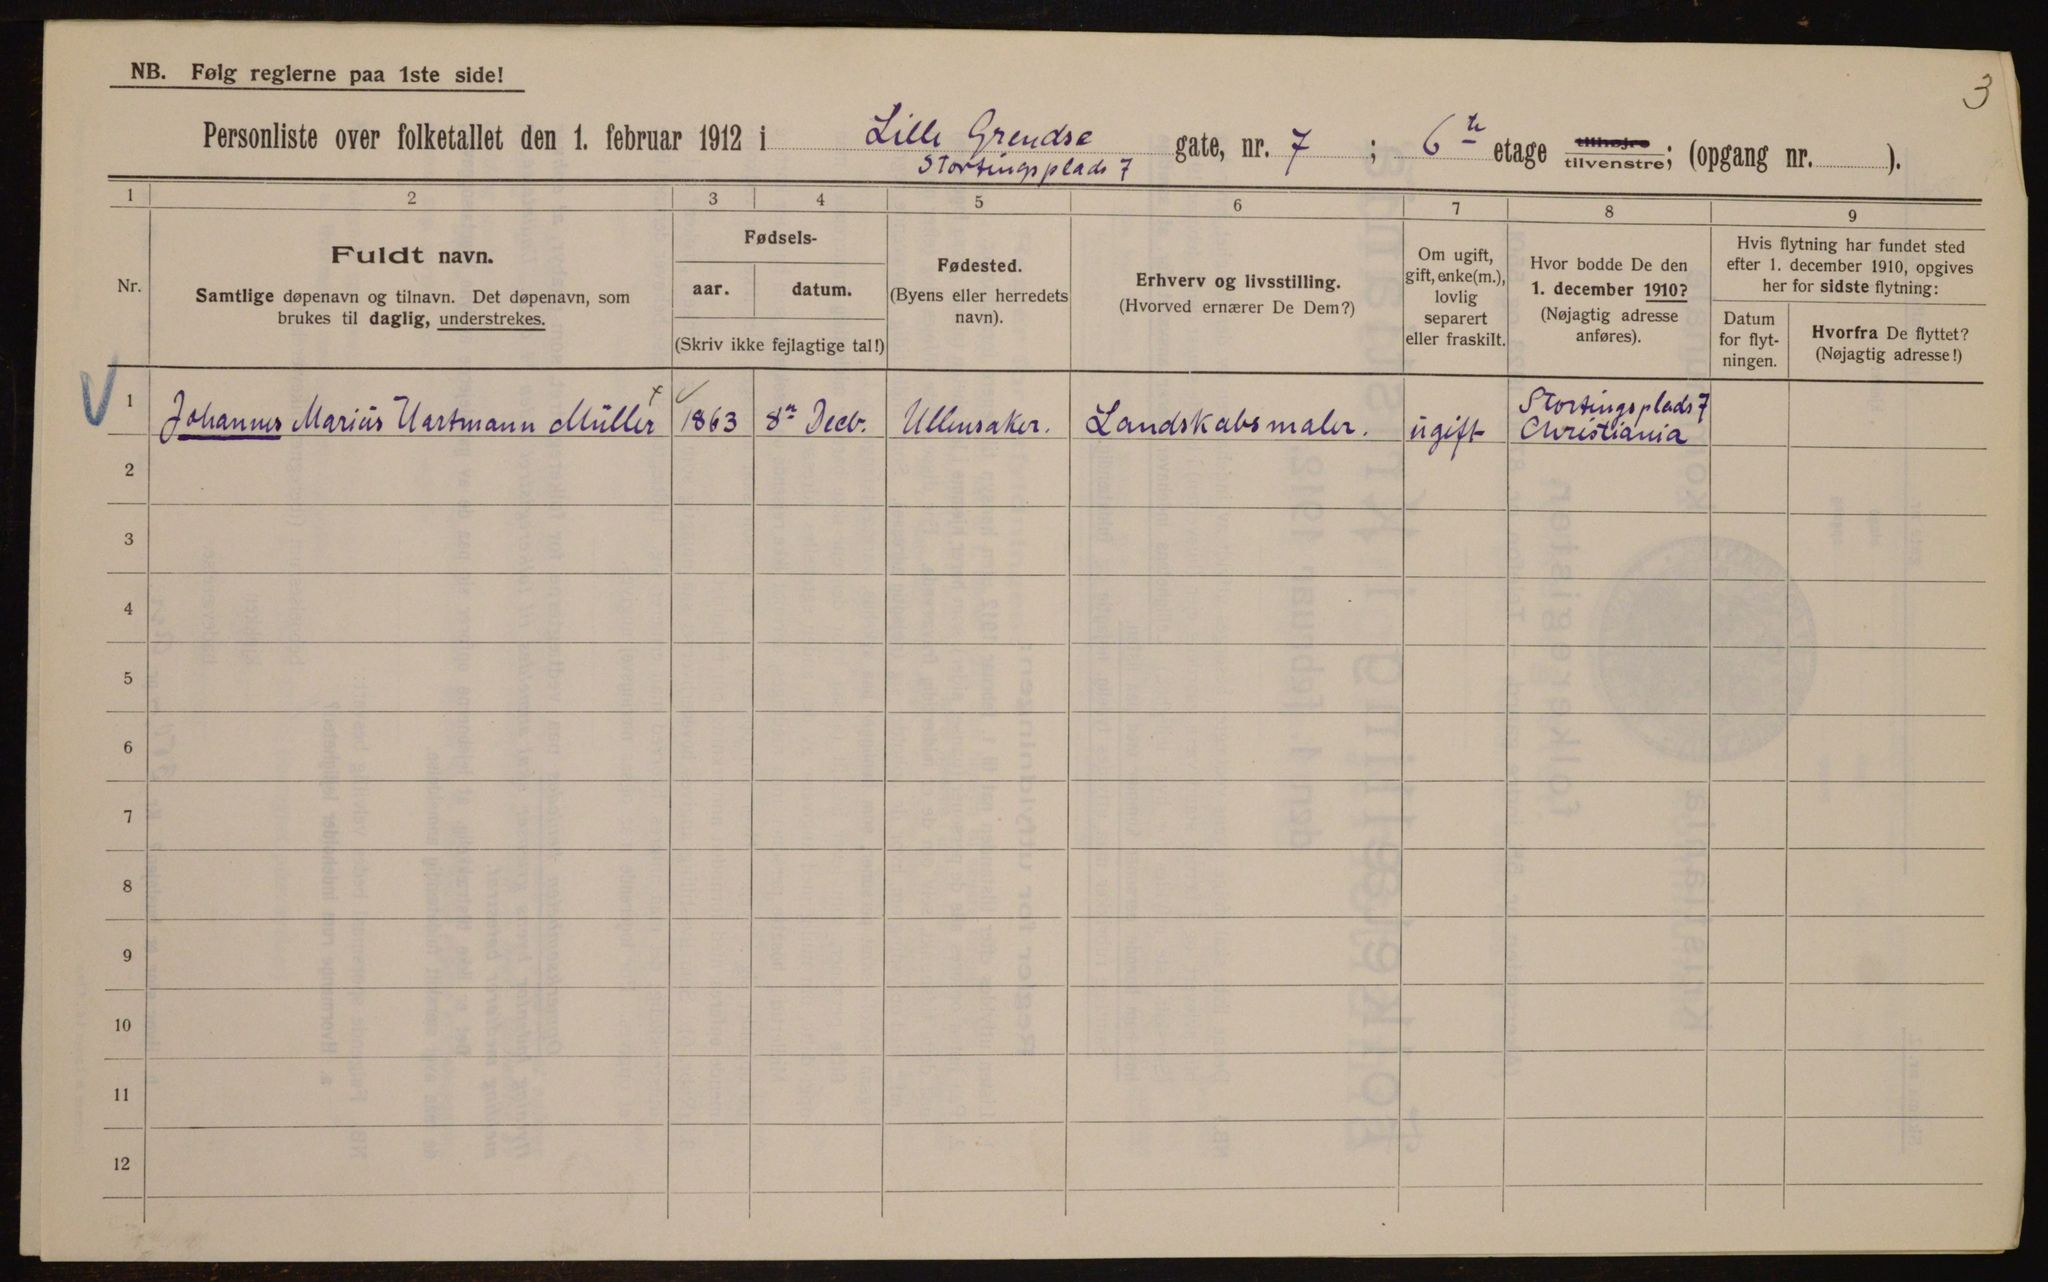 3
NB. Følg reglerne paa 1ste side!
Personliste over folketallet den 1. februar 1912 i Lille Grendse gate, nr. 7 ; 6te etage tilhøjre tilvenstre; (opgang nr. ).
Stortingsplads 7
1 2 3 4 5 6 7 8 9
Nr.
Fuldt navn.
Samtlige døpenavn og tilnavn. Det døpenavn, som
brukes til daglig, understrekes.
Fødsels-
aar. datum.
(Skriv ikke fejlagtige tal!)
Fødested.
(Byens eller herredets
navn).
Erhverv og livsstilling.
(Hvorved ernærer De Dem?)
Om ugift,
gift, enke(m.),
lovlig
separert
eller fraskilt.
Hvor bodde De den
1. december 1910?
(Nøjagtig adresse
anføres).
Hvis flytning har fundet sted
efter 1. december 1910, opgives
her for sidste flytning:
Datum
for flyt-
ningen.
Hvorfra De flyttet?
(Nøjagtig adresse!)
1 Johannes Marius Hartmann Müller 1863 8de Decb. Ullensaker. Landskabsmaler. ugift Stortingsplads 7
Christiania
2
3
4
5
6
7
8
9
10
11
12